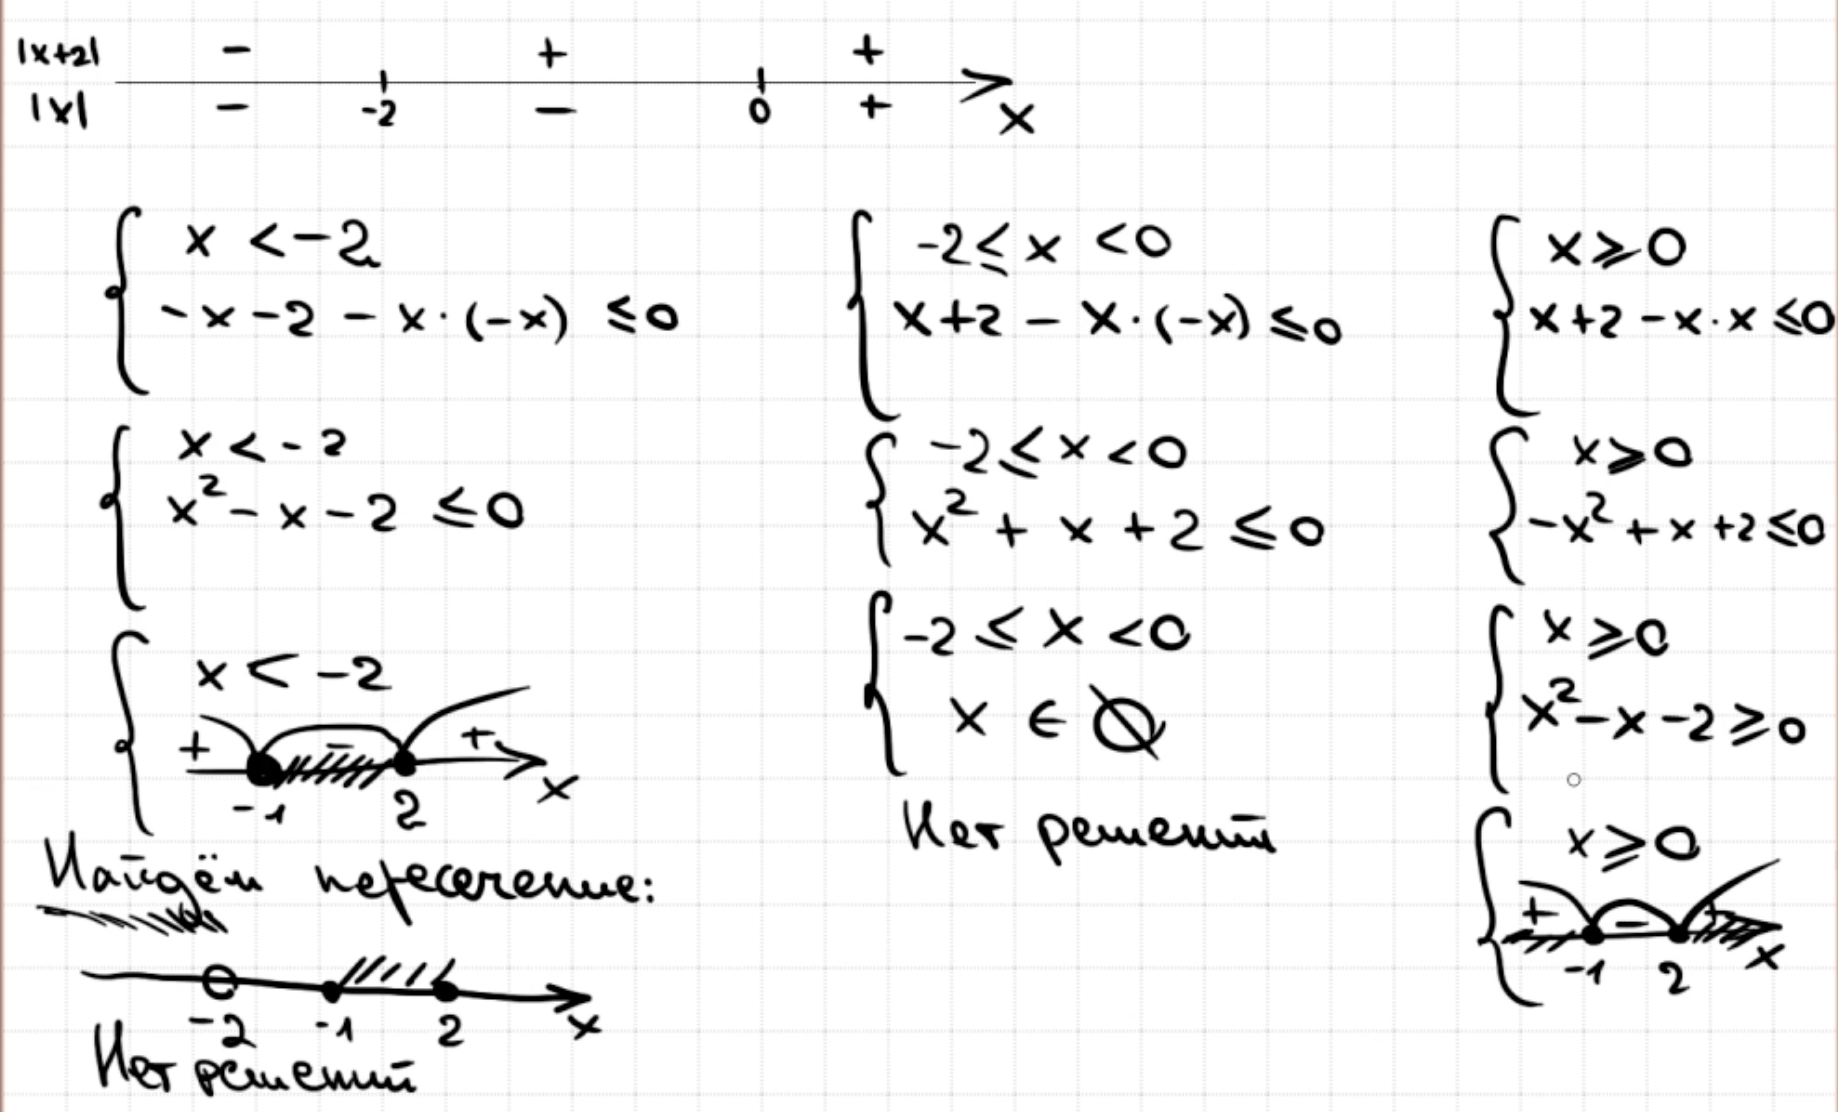 |x+2| - + +
|x| - -2 - 0 + x
x < -2
-x-2 - x·(-x) ≤ 0
x < -2
x² - x - 2 ≤ 0
x < -2
+ - + x
-1 2
Найдём пересечение:
-2 -1 2 x
Нет решений
-2 ≤ x < 0
x+2 - x·(-x) ≤ 0
-2 ≤ x < 0
x² + x + 2 ≤ 0
-2 ≤ x < 0
x ∈ ∅
Нет решений
x ⩾ 0
x+2 - x·x ≤ 0
x ⩾ 0
-x² + x + 2 ≤ 0
x ⩾ 0
x² - x - 2 ⩾ 0
x ⩾ 0
+ - + x
-1 2